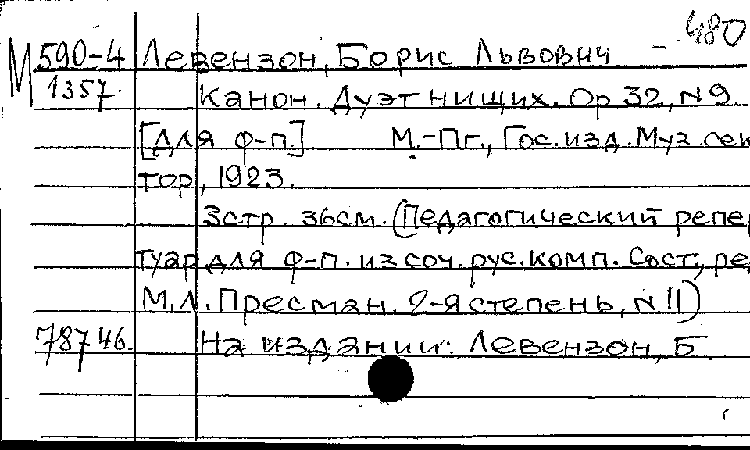 480
М 590-4 Левензон, Борис Львович –
1357 Канон. Дуэт нищих. Op 32, N 9.
[Для ф-п.] М.-Пг., Гос. изд. Муз. сек
тор, 1923.
3 стр. 36 см. (Педагогический репер
туар для ф-п. из соч. рус. комп. Сост., ре
М.Л. Пресман. 2-я степень, N 11)
78746. На издании: Левензон, Б